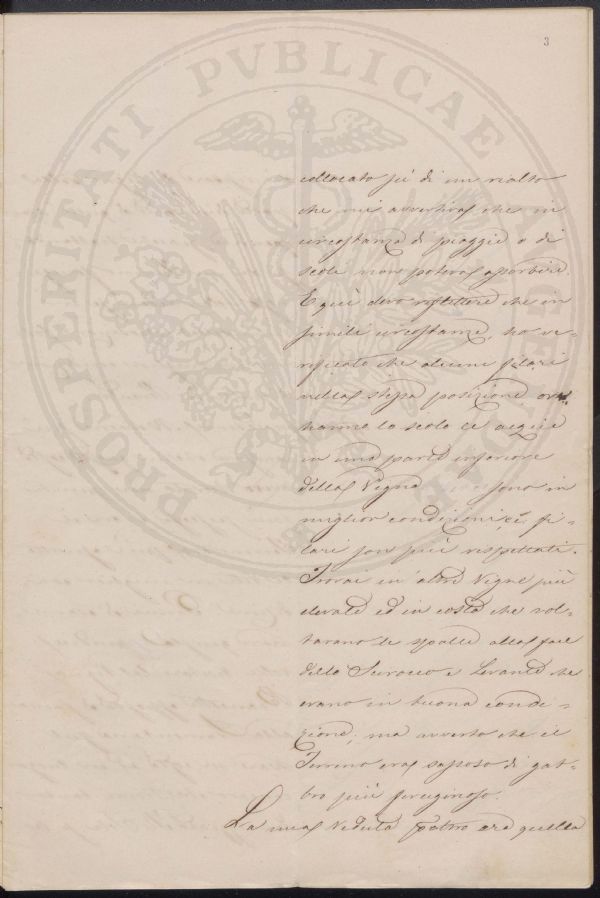 3
PROSPERITATI PVBLICAE AVGENDAE
collocato su di un rialto
che mi avvertiva che in
circostanza di pioggie o di
scoli non poteva assorbire.
E quì devo riflettere che in
simili circostanze, ho ve-
rificato che alcuni filari
nella stessa posizione ove
hanno lo scolo le acque
in una parte inferiore
della Vigna sono in
miglior condizioni, e i fi-
lari son più rispettati.
Trovai in altre Vigne più
elevate ed in costa che vol-
tavano le spalle alla face
dello Scirocco e Levante che
erano in buona condi-
zione; ma avverto che il
Terreno era sassoso di gab-
bro più feruginoso.
La mia veduta poltro era quella